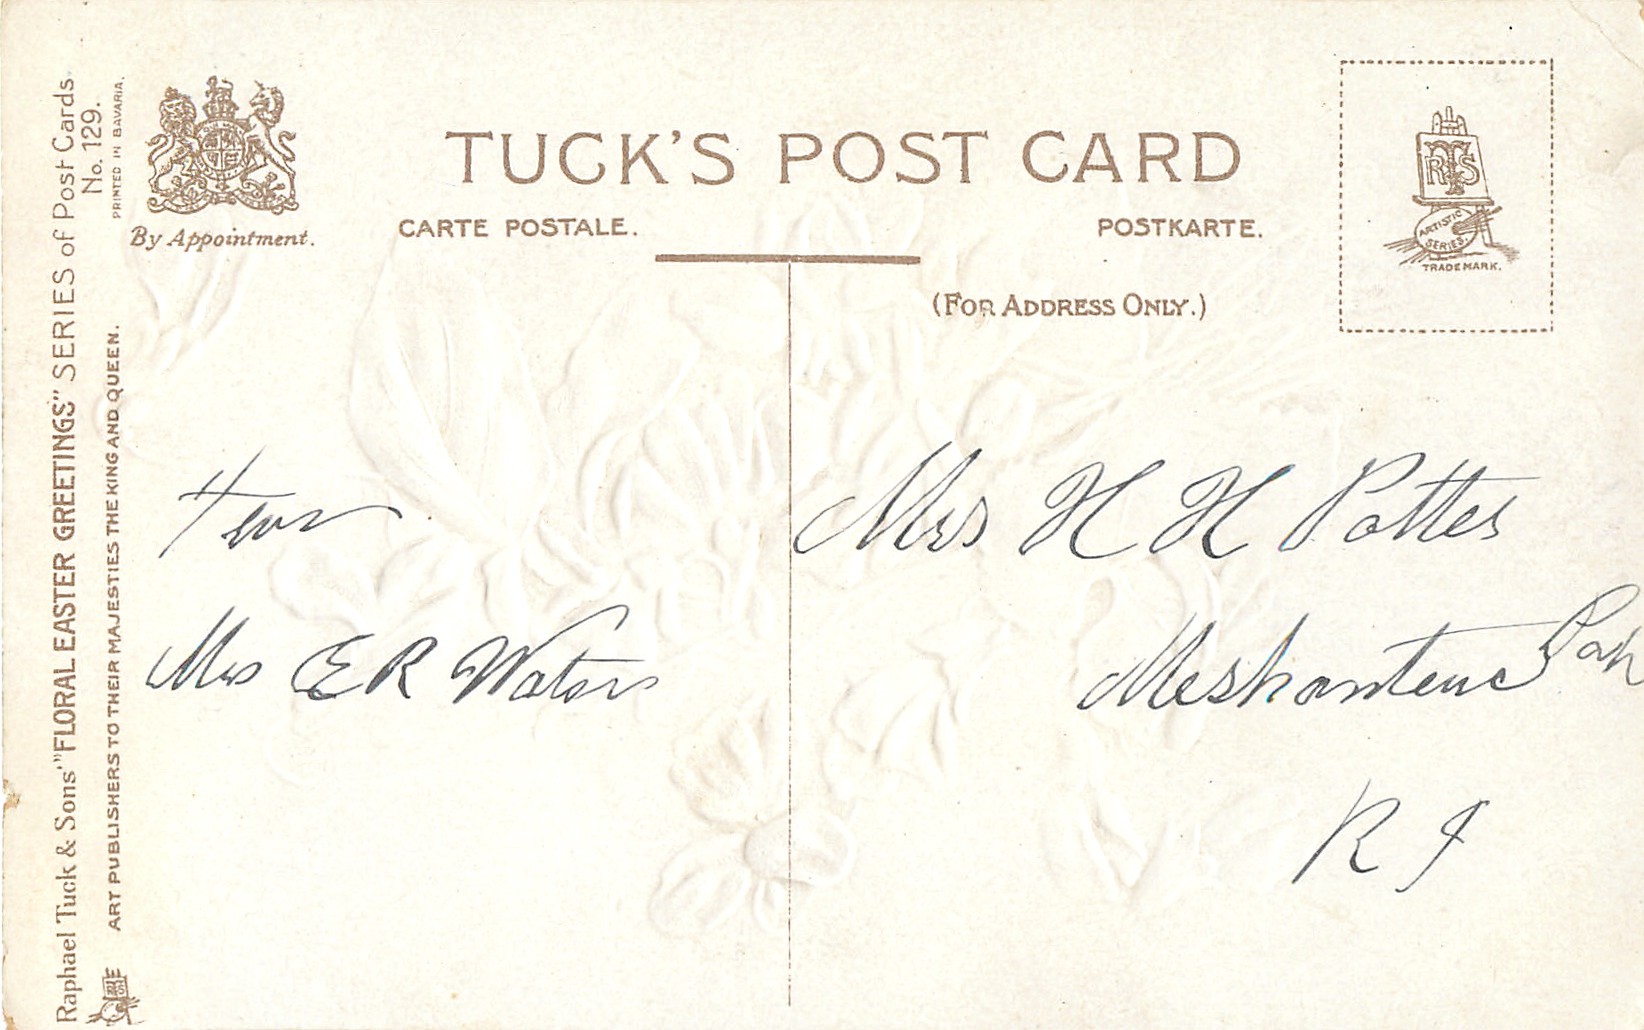 Raphael Tuck & Sons' "FLORAL EASTER GREETINGS" SERIES of Post Cards
No. 129.
PRINTED IN BAVARIA.
ART PUBLISHERS TO THEIR MAJESTIES THE KING AND QUEEN.
By Appointment.
TUCK'S POST CARD
CARTE POSTALE.
POSTKARTE.
(FOR ADDRESS ONLY.)
RTS
ARTISTIC
SERIES.
TRADE MARK.
Mrs E R Waters
Mrs H H Potter
Meshanteuc Park
R I